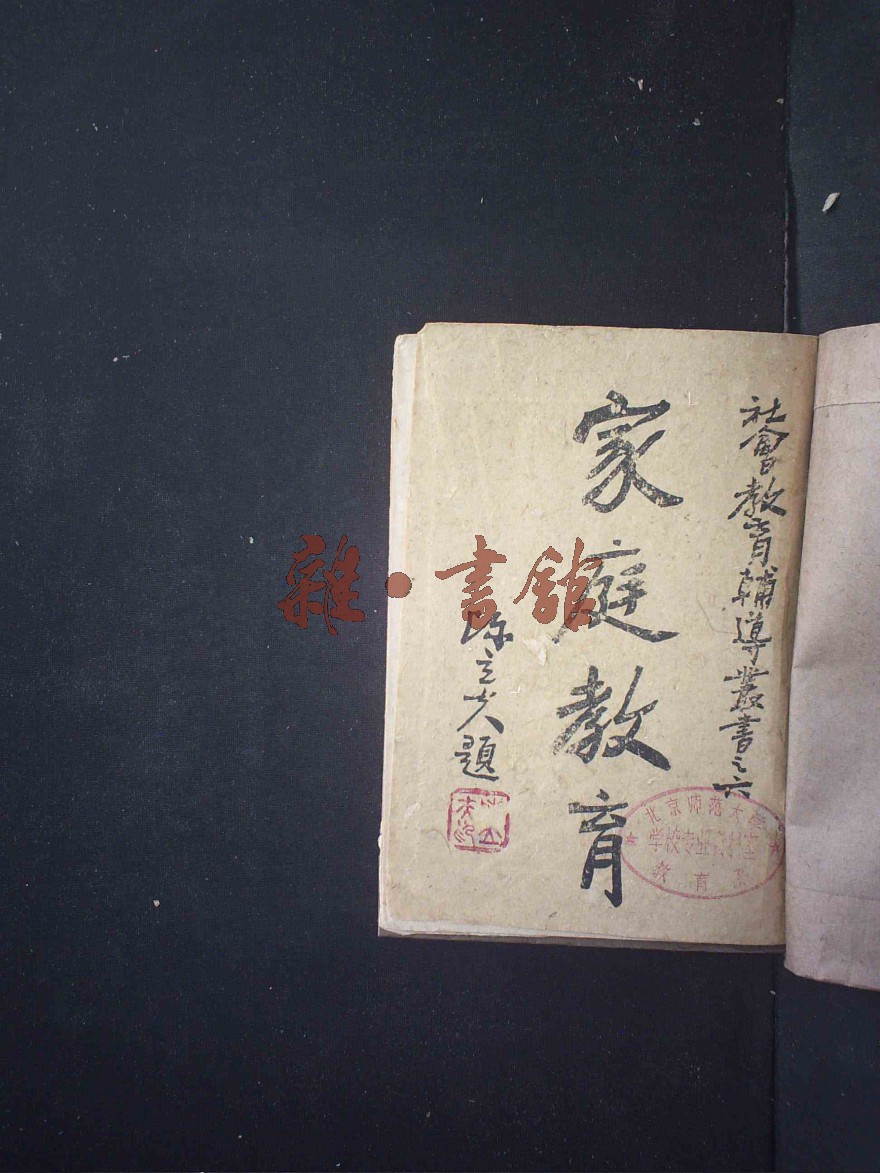 社會教育輔導叢書之六
家庭教育
陳立夫題
雜·書館
北京师范大學
教育系